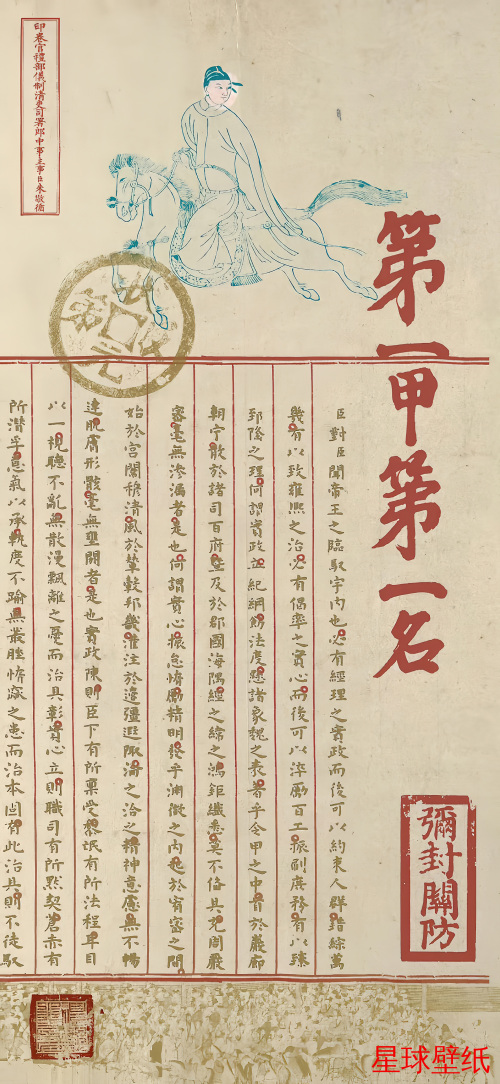 第一甲第一名
彌封關防
臣對臣聞帝王之臨馭宇內也必有經理之實政而後可以約束人群錯綜萬
幾有以致雍熙之治必有倡率之實心而後可以淬勵百工振刷庶務有以臻
郅隆之理何謂實政立紀綱飭法度懸諸象魏之表著乎令甲之中首於巖廊
朝宁散於諸司百府暨及於郡國海隅經之緯之鴻鉅纖悉莫不俻具充周嚴
密毫無滲漏者是也何謂實心振怠惰勵精明發乎淵微之內起於宥密之間
始於宮闈穆清風於輦轂邦畿灌注於邊疆遐陬淪之洽之精神意慮無不暢
達肌膚形骸毫無壅閼者是也實政陳則臣下有所稟受黎氓有所法程耳目
以一視聽不亂無散漫飄離之憂而治具彰實心立則職司有所默契蒼赤有
所潛孚意氣以承軌度不踰無叢脞惰窳之患而治本固有此治具則不徒馭
印卷官禮部儀制清吏司署郎中事主事臣朱敬循
星球壁纸